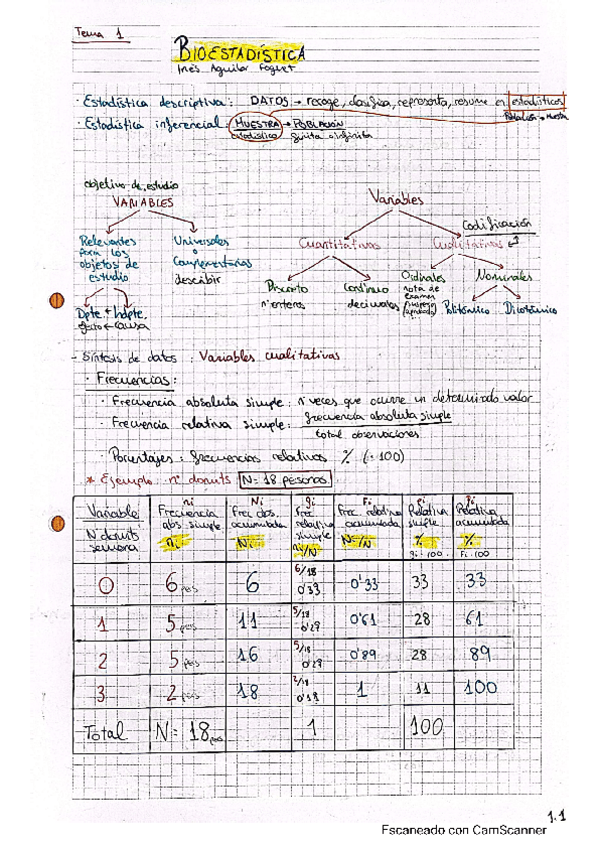 Tema 1
BIOESTADÍSTICA
Inés Aguilar Foguet
· Estadística descriptiva: DATOS → recoge, clasifica, representa, resume en estadísticos
· Estadística inferencial: MUESTRA → POBLACIÓN
Población → muestra
estadístico finita o infinita
objetivo de estudio
VARIABLES
Relevantes para los objetos de estudio
Universales o Complementarias
describir
Dpte. + Indpte.
efecto ← causa
Variables
Codificación
Cuantitativas Cualitativas
Discreto
nº enteros
Continuo
decimales
Ordinales
nota de examen
Nominales
Politómico Dicotómico
- Síntesis de datos: Variables cualitativas
· Frecuencias:
· Frecuencia absoluta simple: nº veces que ocurre un determinado valor
· Frecuencia relativa simple: frecuencia absoluta simple
total observaciones
· Porcentajes: frecuencias relativas % (· 100)
* Ejemplo: nº donuts N = 18 personas
Variable
Nº donuts semana
ni Frecuencia abs. simple ni
Ni Frec. abs. acumulada Ni
fi Frec. relativa simple ni/N
Fi Frec. relativa acumulada Ni/N
pi Relativa simple % fi · 100
Pi Relativa acumulada % Fi · 100
0 6 pers 6 6/18 0'33 0'33 33 33
1 5 pers 11 5/18 0'28 0'61 28 61
2 5 pers 16 5/18 0'28 0'89 28 89
3 2 pers 18 2/18 1 11 100
Total N = 18 pers 1 100
1.1
Escaneado con CamScanner